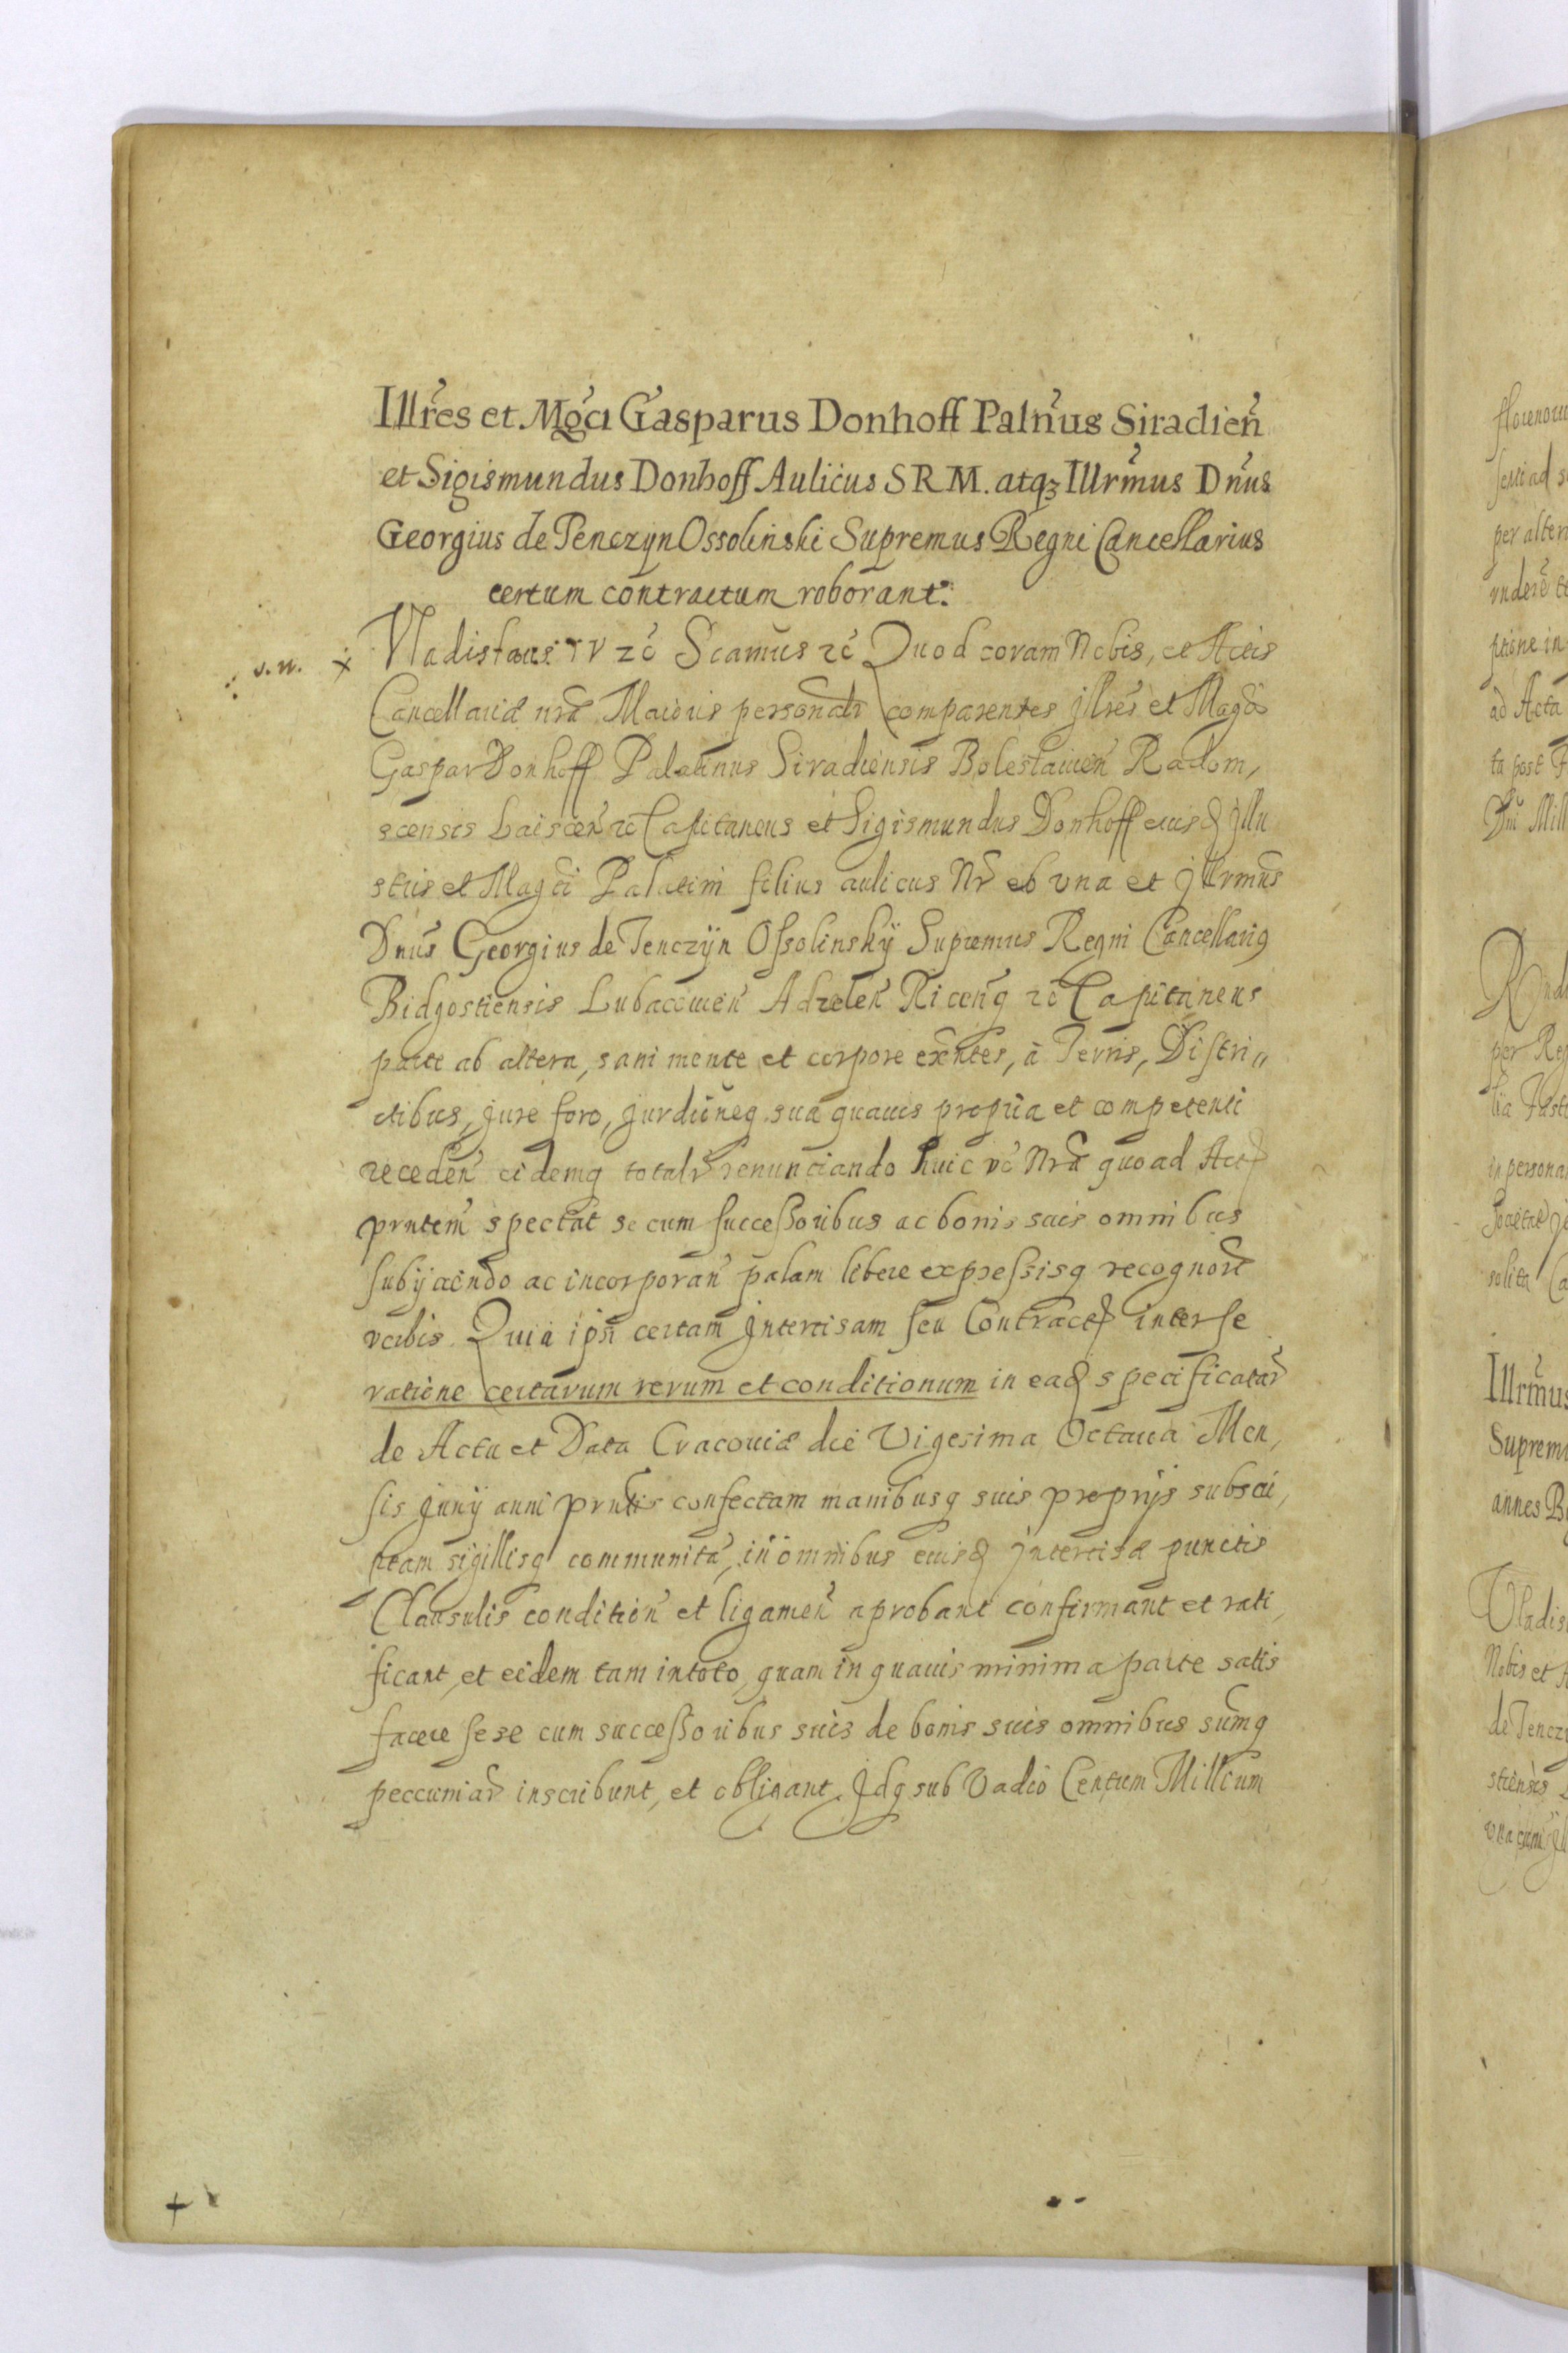 Illr̃es et Mgc̃i Gasparus Donhoff Palñus Siradień
et Sigismundus Donhoff Aulicus S R M. atqz Illrm̃us Dñus
Georgius de Tenczyn Ossolinski Supremus Regni Cancellarius
certum contractum roborant.
Vladislaus IV zc̃ Scamus zc̃ Quod coram Nobis, et Actis
Cancellariæ nr̃a Maioris personalr̃ comparentes Jllr̃es et Magc̃i
Gaspar Donhoff Palatinus Siradiensis Bolestauień Radom,
scensis zc̃ Capitaneus et Sigismundus Donhoff eiusd Jllu
stris et Magc̃i Palatini filius aulicus Nr̃ ab vna et Jllrm̃us
Dñus Georgius de Tenczÿn Ossolinskÿ Supremus Regni Cancellarig
Bidgostiensis Lubaczouień zc̃ Capitaneus
parte ab altera, sani mente et corpore exñtes, à Terris, Distri„
ctibus, jure foro, jurdiõneq suã quauis propria et competenti
receden̄ eidemq totalr̃ renunciando huic vo Nrã quoad Act
prñtem spectat se cum successoribus ac bonis suis omnibus
subÿciendo ac incorporan̄ palam libere expressisq recognor̃t
verbis. Quia ipsi certam Jntercisam seu Contract inter se
ratione certarum rerum et conditionum in ead specificatar̃
de Actu et Data Cracouiæ die Vigesima Octaua Men,
sis Junÿ anni prñtis confectam manibusq suis proprijs subscri,
ptam sigillisq communitã, in omnibus eiusd Jntercisæ punctis
Clausulis condition̄ et ligamen̄ aprobant confirmant et rati,
ficant, et eidem tam in toto, quam in quauis minima parte satis
facere sese cum successoribus suis de bonis suis omnibus sum̃q
peccuniar̃ inscribunt, et obligant. Jdq sub Vadio Centum Millium